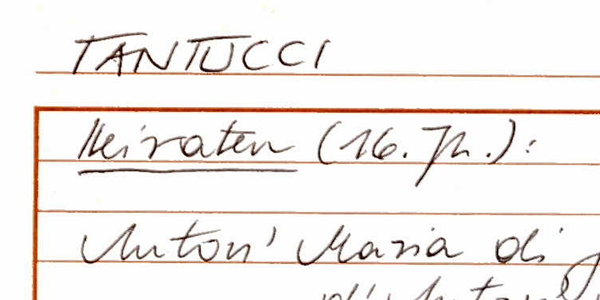 TANTUCCI
Heiraten (16. Jh.):
Anton' Maria di